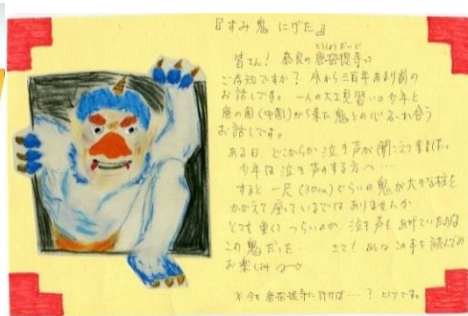 『すみ鬼 にげた』
とうしょうだいじ
皆さん! 奈良の唐招提寺は
ご存知ですか? 今から三百年あまり前の
お話しです。一人の大工見習いの少年と
唐の国(中国)から来た鬼との心ふれ合う
お話しです。
ある日、どこからか泣き声が聞こえて来ました。
少年は泣き声のする方へ…
すると一尺(30cm)ぐらいの鬼が大きな柱を
かかえて座っているではありませんか
とても重くてつらいのか、泣き声をあげていたのは
この鬼だった… さて! あとはこの本を読んでの
お楽しみ
※今も唐招提寺に行けば…? どこかです。